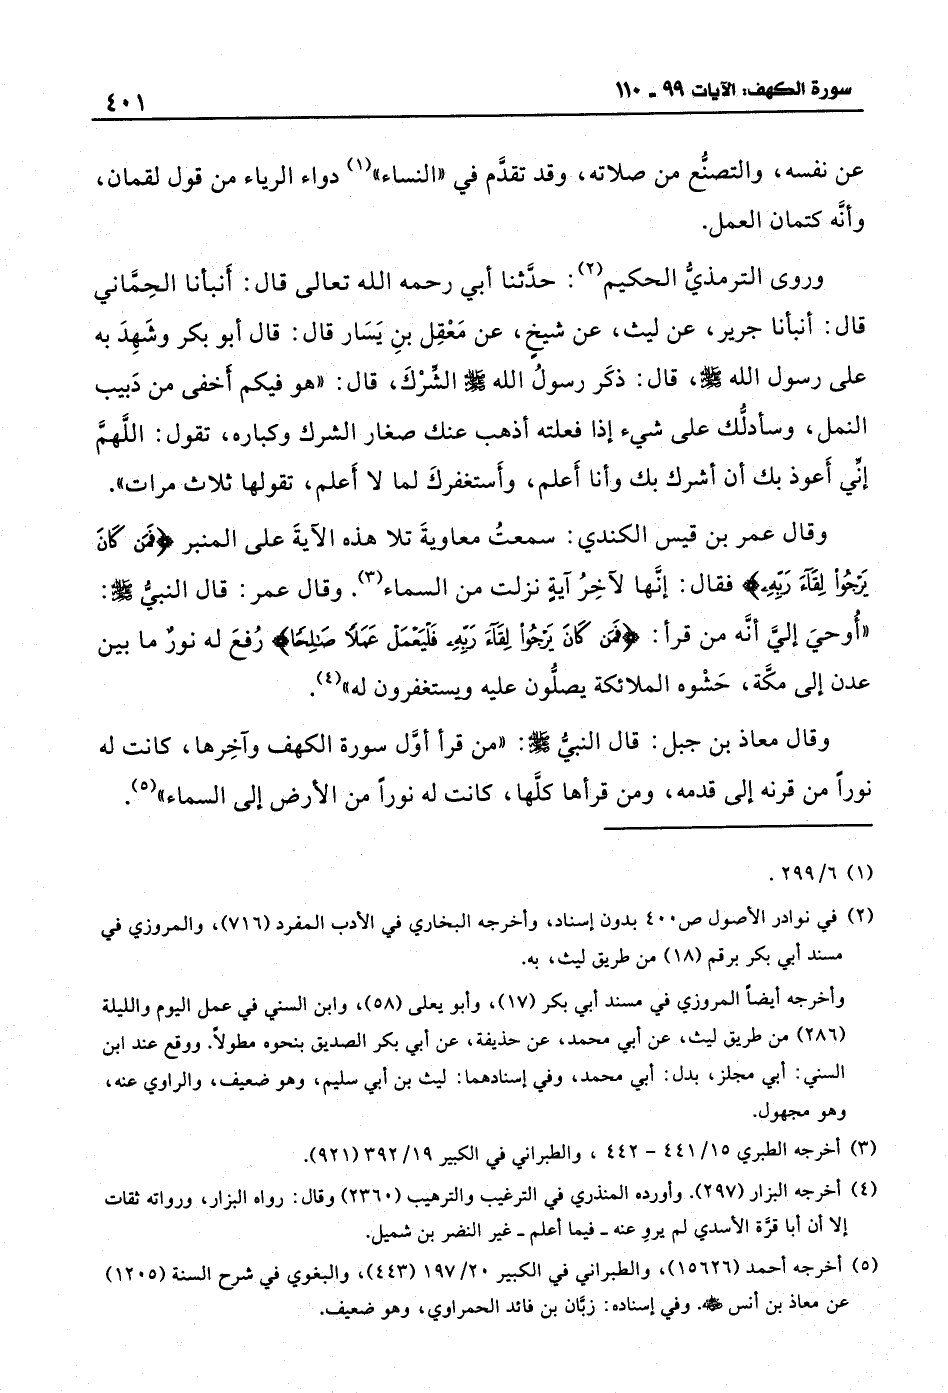 سورة الكهف: الآيات ٩٩ ـ ١١٠
٤٠١
عن نفسه، والتصنُّع من صلاته، وقد تقدَّم في «النساء»(١) دواء الرياء من قول لقمان،
وأنَّه كتمان العمل.
وروى الترمذيُّ الحكيم(٢): حدَّثنا أبي رحمه الله تعالى قال: أَنبأنا الحِمَّاني
قال: أنبأنا جرير، عن ليث، عن شيخٍ، عن مَعْقِل بنِ يَسَار قال: قال أبو بكر وشَهِدَ به
على رسول الله ﷺ، قال: ذكَر رسولُ الله ﷺ الشِّرْكَ، قال: «هو فيكم أَخفى من دَبيب
النمل، وسأدلُّك على شيء إذا فعلته أذهب عنك صغار الشرك وكباره، تقول: اللَّهمَّ
إنِّي أَعوذ بك أن أشرك بك وأنا أَعلم، وأَستغفركَ لما لا أَعلم، تقولها ثلاث مرات».
وقال عمر بن قيس الكندي: سمعتُ معاويةَ تلا هذه الآيةَ على المنبر ﴿فَمَن كَانَ
يَرْجُواْ لِقَآءَ رَبِّهِۦ﴾ فقال: إنَّها لآخِرُ آيةٍ نزلت من السماء(٣). وقال عمر: قال النبيُّ ﷺ:
«أُوحيَ إليَّ أنَّه من قرأ: ﴿فَمَن كَانَ يَرْجُواْ لِقَآءَ رَبِّهِۦ فَلْيَعْمَلْ عَمَلًا صَٰلِحًا﴾ رُفعَ له نورٌ ما بين
عدن إلى مكَّة، حَشْوه الملائكة يصلُّون عليه ويستغفرون له»(٤).
وقال معاذ بن جبل: قال النبيُّ ﷺ: «من قرأ أوَّل سورة الكهف وآخِرها، كانت له
نوراً من قرنه إلى قدمه، ومن قرأها كلَّها، كانت له نوراً من الأرض إلى السماء»(٥).
(١) ٦/ ٢٩٩ .
(٢) في نوادر الأصول ص٤٠٠ بدون إسناد، وأخرجه البخاري في الأدب المفرد (٧١٦)، والمروزي في
مسند أبي بكر برقم (١٨) من طريق ليث، به.
وأخرجه أيضاً المروزي في مسند أبي بكر (١٧)، وأبو يعلى (٥٨)، وابن السني في عمل اليوم والليلة
(٢٨٦) من طريق ليث، عن أبي محمد، عن حذيفة، عن أبي بكر الصديق بنحوه مطولاً. ووقع عند ابن
السني: أبي مجلز، بدل: أبي محمد، وفي إسنادهما: ليث بن أبي سليم، وهو ضعيف، والراوي عنه،
وهو مجهول.
(٣) أخرجه الطبري ١٥/ ٤٤١ - ٤٤٢ ، والطبراني في الكبير ١٩/ ٣٩٢ (٩٢١).
(٤) أخرجه البزار (٢٩٧). وأورده المنذري في الترغيب والترهيب (٢٣٦٠) وقال: رواه البزار، ورواته ثقات
إلا أن أبا قرَّة الأسدي لم يرو عنه ـ فيما أعلم ـ غير النضر بن شميل.
(٥) أخرجه أحمد (١٥٦٢٦)، والطبراني في الكبير ٢٠/ ١٩٧ (٤٤٣)، والبغوي في شرح السنة (١٢٠٥)
عن معاذ بن أنس ﵁. وفي إسناده: زبَّان بن فائد الحمراوي، وهو ضعيف.